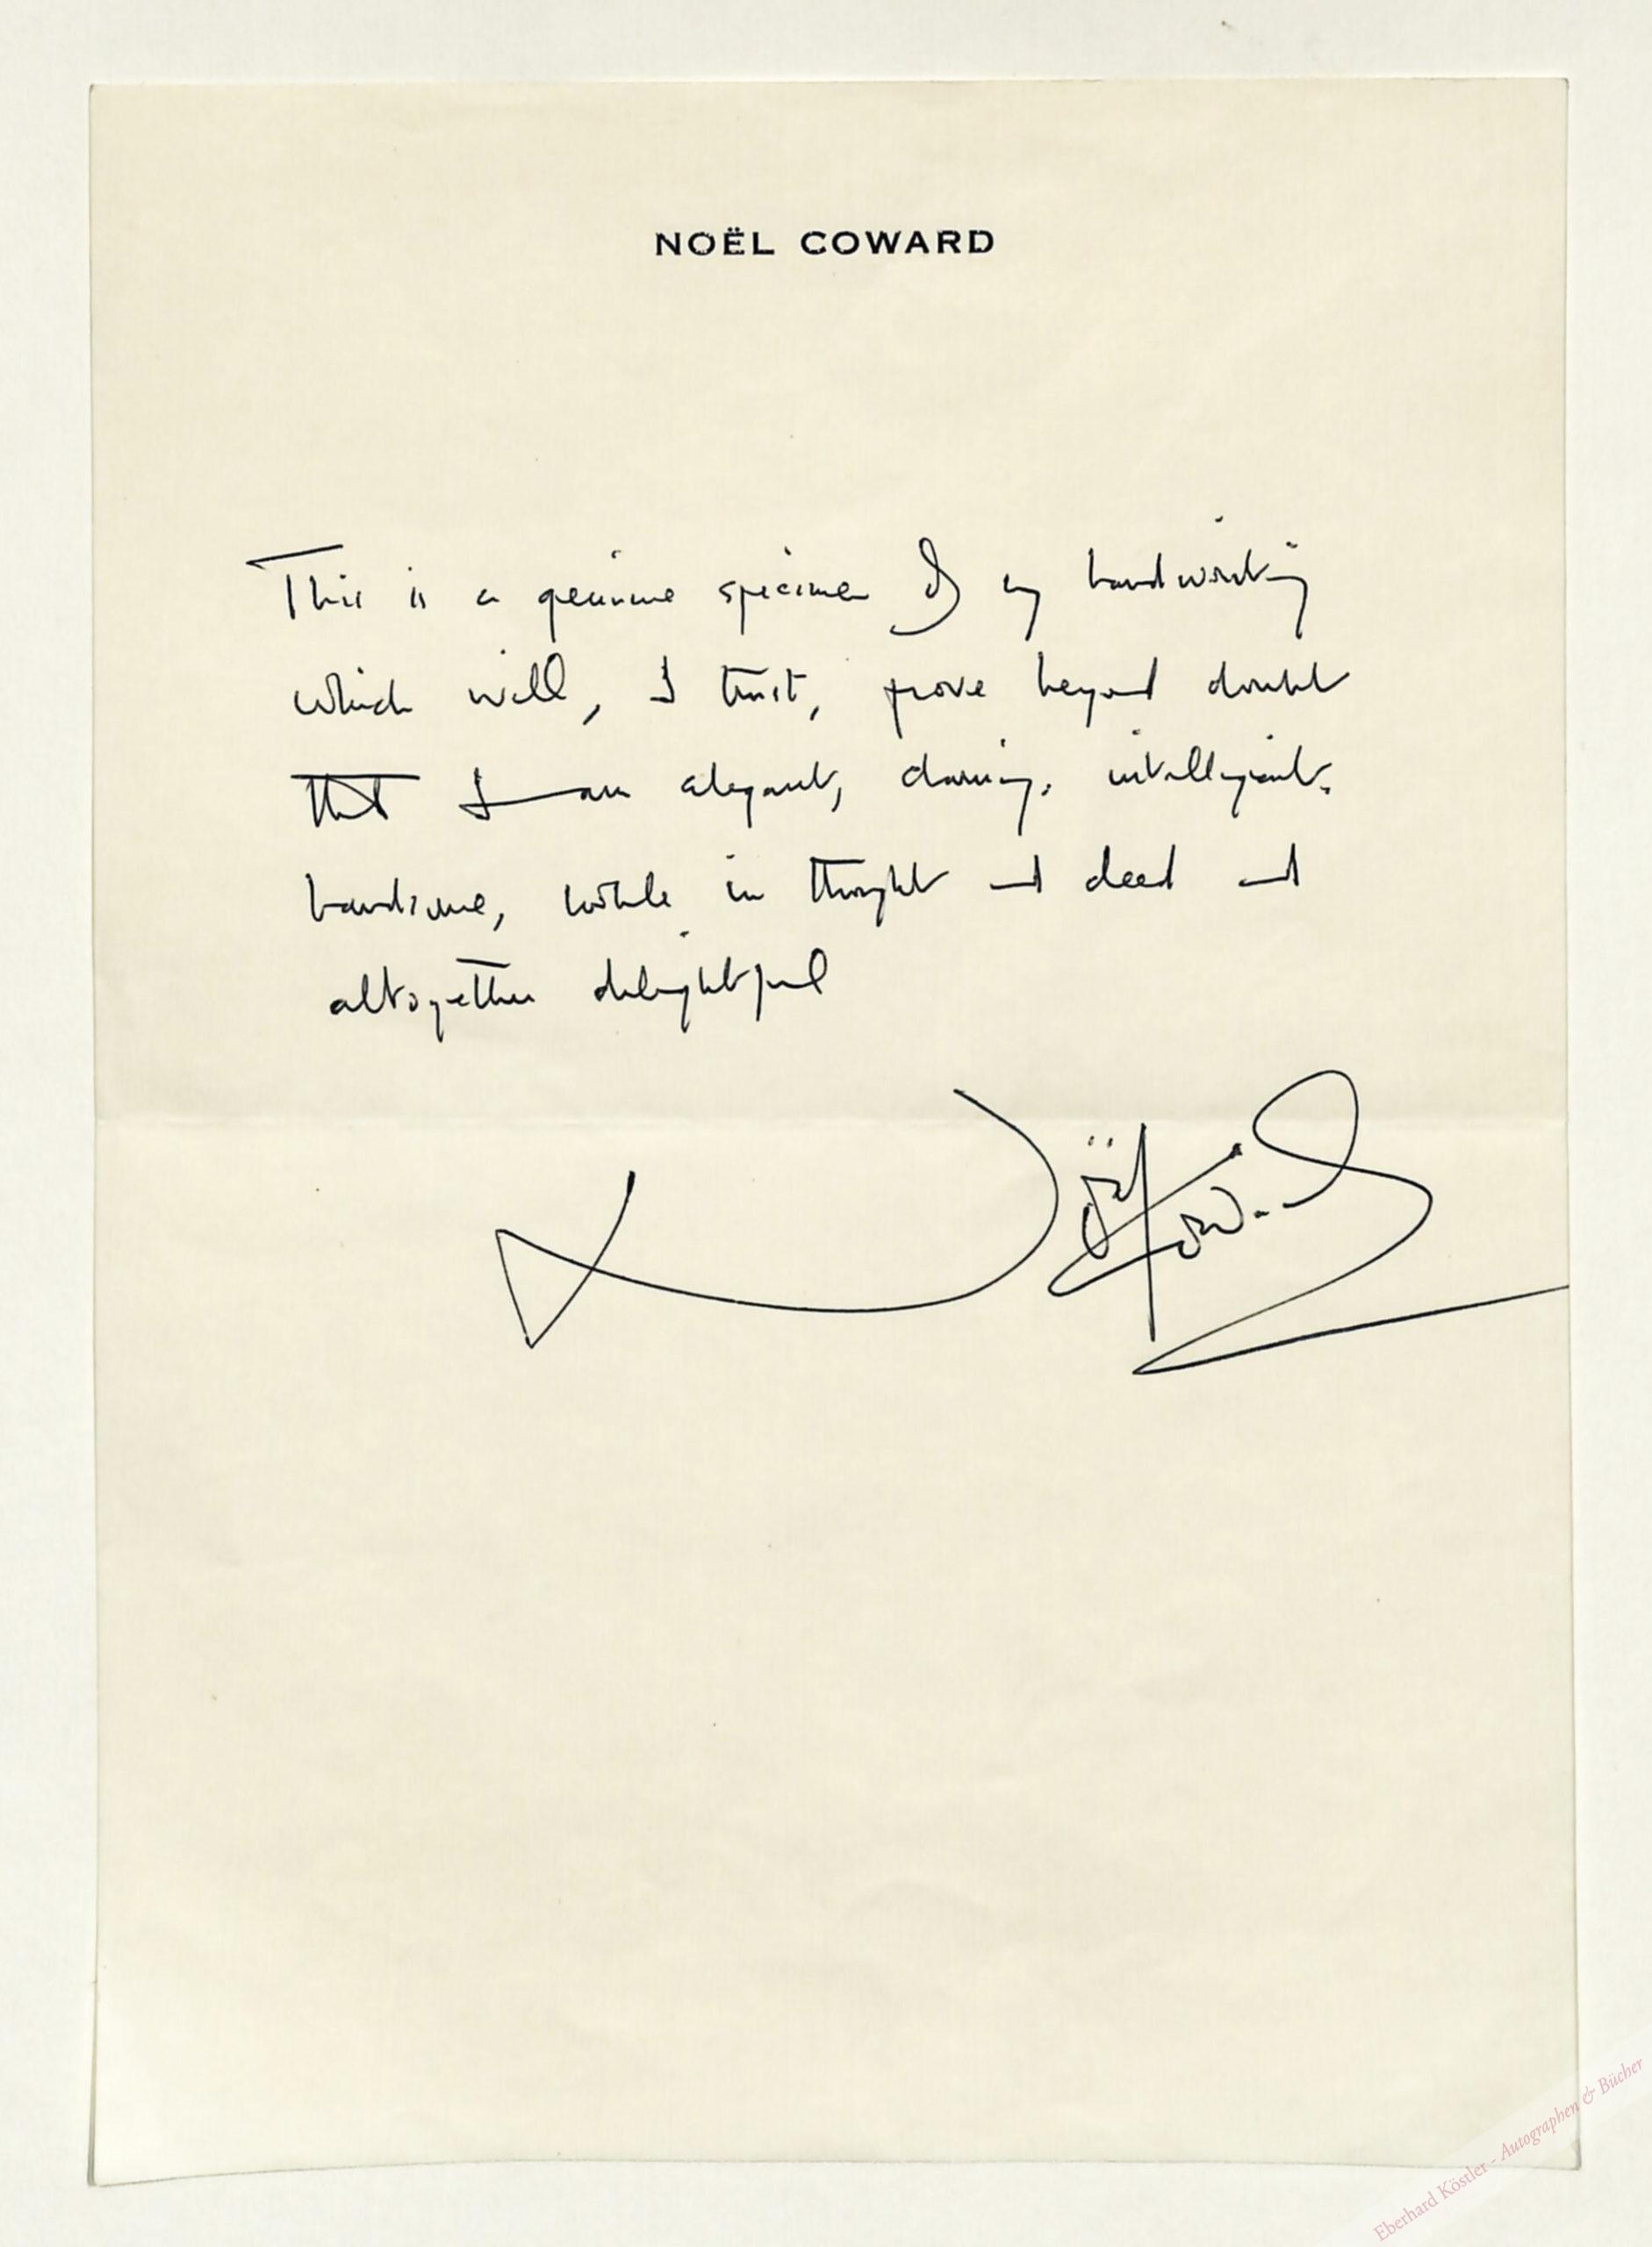 NOËL COWARD
This is a genuine specimen of my handwriting
which will, I trust, prove beyond doubt
that I am elegant, daring, intelligent,
handsome, white in thought and deed and
altogether delightful
Noël Coward
Eberhard Köstler - Autographen & Bücher